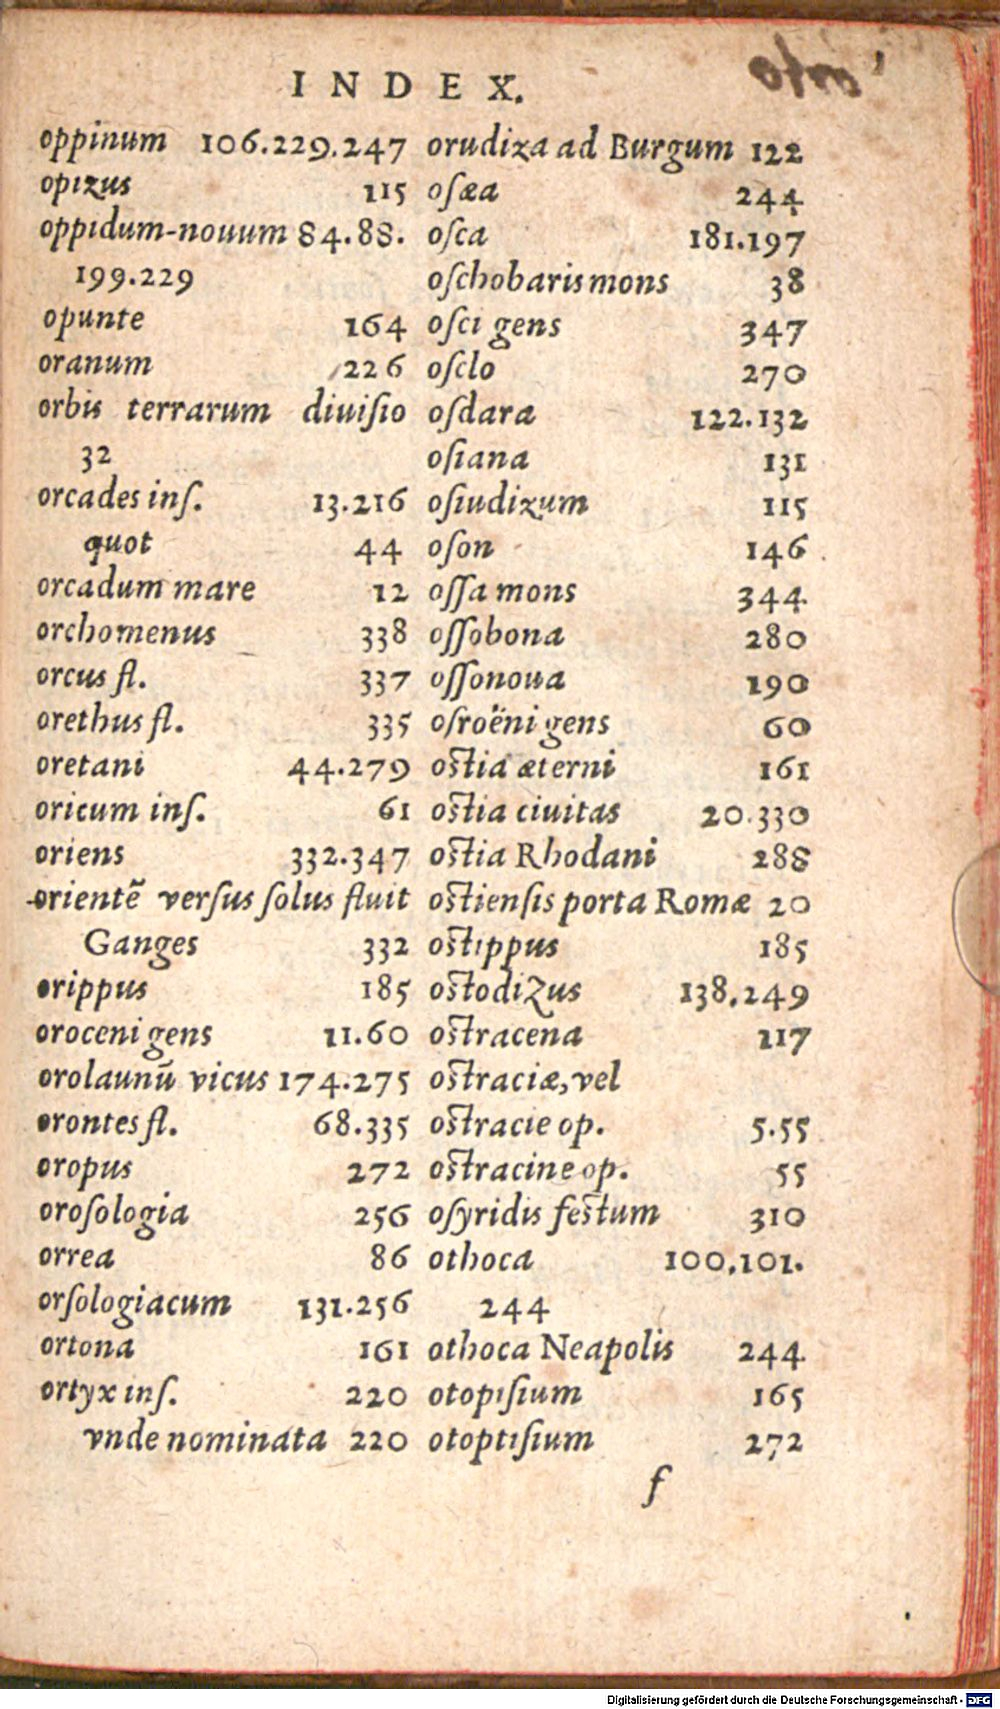 INDEX.
oppinum 106.229.247
opizus 115
oppidum-nouum 84.88.
199.229
opunte 164
oranum 226
orbis terrarum diuiſio
32
orcades inſ. 13.216
quot 44
orcadum mare 12
orchomenus 338
orcus fl. 337
orethus fl. 335
oretani 44.279
oricum inſ. 61
oriens 332.347
orientē verſus ſolus fluit
Ganges 332
orippus 185
oroceni gens 11.60
orolaunū vicus 174.275
orontes fl. 68.335
oropus 272
oroſologia 256
orrea 86
orſologiacum 131.256
ortona 161
ortyx inſ. 220
vnde nominata 220
orudiza ad Burgum 122
oſæa 244
oſca 181.197
oſchobaris mons 38
oſci gens 347
oſclo 270
oſdara 122.132
oſiana 131
oſiudizum 115
oſon 146
oſſa mons 344
oſſobona 280
oſſonoua 190
oſroëni gens 60
oſtia æterni 161
oſtia ciuitas 20.330
oſtia Rhodani 288
oſtienſis porta Romæ 20
oſtippus 185
oſtodizus 138.249
oſtracena 117
oſtraciæ, vel
oſtracie op. 5.55
oſtracine op. 55
oſyridis feſtum 310
othoca 100.101.
244
othoca Neapolis 244
otopiſium 165
otoptiſium 272
f
Digitalisierung gefördert durch die Deutsche Forschungsgemeinschaft - DFG